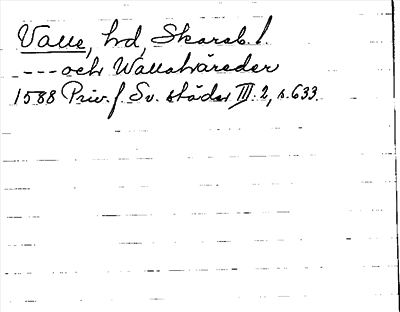 Valle, hd, Skarab. l.
--- och Wallahäreder
1588 Priv. f. Sv. städer III: 2, s. 633.